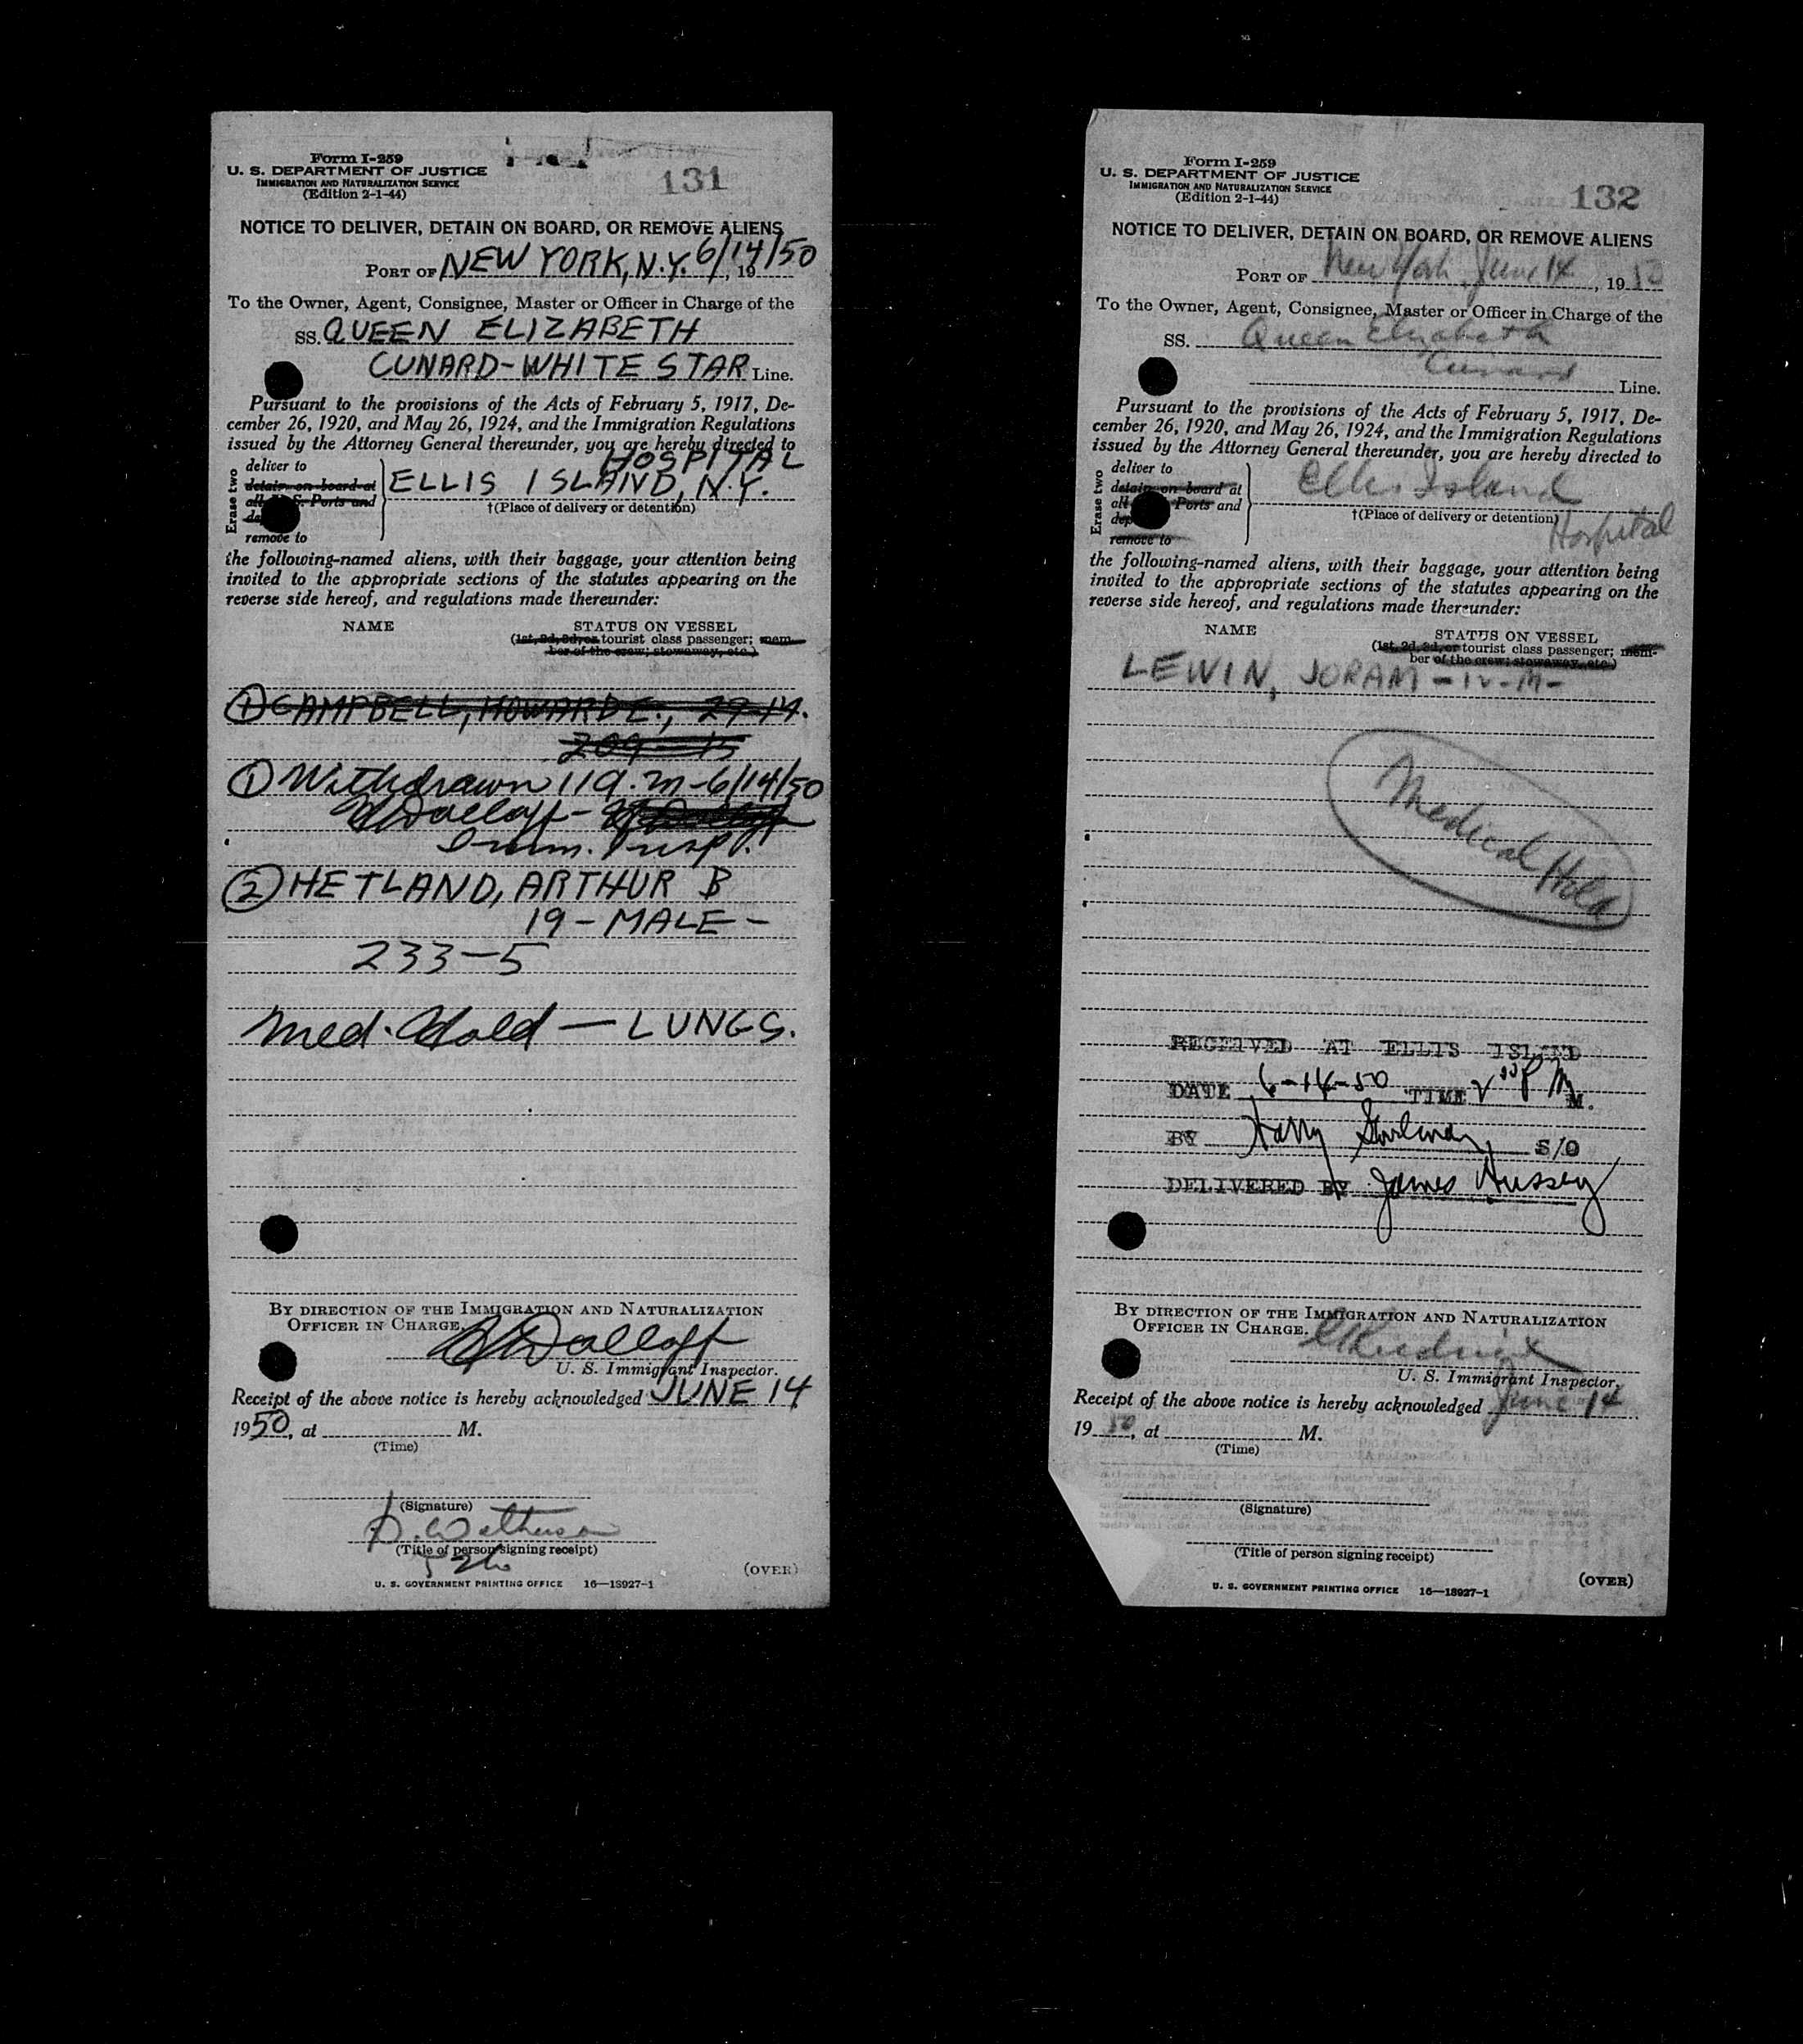 Form I-259
U. S. DEPARTMENT OF JUSTICE
IMMIGRATION AND NATURALIZATION SERVICE
(Edition 2-1-44)
131
NOTICE TO DELIVER, DETAIN ON BOARD, OR REMOVE ALIENS
PORT OF NEW YORK, N.Y. 6/14/50, 19
To the Owner, Agent, Consignee, Master or Officer in Charge of the
SS. QUEEN ELIZABETH
CUNARD-WHITE STAR Line.
Pursuant to the provisions of the Acts of February 5, 1917, De-
cember 26, 1920, and May 26, 1924, and the Immigration Regulations
issued by the Attorney General thereunder, you are hereby directed to
HOSPITAL
Erase two
deliver to
detain on board at
all U.S. Ports and
remove to
ELLIS ISLAND, N.Y.
†(Place of delivery or detention)
the following-named aliens, with their baggage, your attention being
invited to the appropriate sections of the statutes appearing on the
reverse side hereof, and regulations made thereunder:
NAME STATUS ON VESSEL
(1st, 2d, 3d, or tourist class passenger; mem-
ber of the crew; stowaway, etc.)
① CAMPBELL, HOWARD E., 29-M.
209-15
① Withdrawn 11 a.m-6/14/50
Dalloff-
Imm. Insp.
② HETLAND, ARTHUR B
19 - MALE -
233-5
Med. Hold — LUNGS.
BY DIRECTION OF THE IMMIGRATION AND NATURALIZATION
OFFICER IN CHARGE.
Dalloff
U. S. Immigrant Inspector.
Receipt of the above notice is hereby acknowledged JUNE 14
1950, at M.
(Time)
(Signature)
(Title of person signing receipt)
(OVER)
U. S. GOVERNMENT PRINTING OFFICE 16—18927-1
Form I-259
U. S. DEPARTMENT OF JUSTICE
IMMIGRATION AND NATURALIZATION SERVICE
(Edition 2-1-44)
132
NOTICE TO DELIVER, DETAIN ON BOARD, OR REMOVE ALIENS
PORT OF New York, June 14, 1950
To the Owner, Agent, Consignee, Master or Officer in Charge of the
SS. Queen Elizabeth
Cunard Line.
Pursuant to the provisions of the Acts of February 5, 1917, De-
cember 26, 1920, and May 26, 1924, and the Immigration Regulations
issued by the Attorney General thereunder, you are hereby directed to
Erase two
deliver to
detain on board at
all Ports and
remove to
Ellis Island
†(Place of delivery or detention)
Hospital
the following-named aliens, with their baggage, your attention being
invited to the appropriate sections of the statutes appearing on the
reverse side hereof, and regulations made thereunder:
NAME STATUS ON VESSEL
(1st, 2d, 3d, or tourist class passenger; mem-
ber of the crew; stowaway, etc.)
LEWIN, JORAM - 12 - M -
Medical Hold
RECEIVED AT ELLIS ISLAND
DATE 6-14-50 TIME P M M.
BY Harry S/O
DELIVERED BY James Hussey
BY DIRECTION OF THE IMMIGRATION AND NATURALIZATION
OFFICER IN CHARGE.
U. S. Immigrant Inspector.
Receipt of the above notice is hereby acknowledged June 14
1950, at M.
(Time)
(Signature)
(Title of person signing receipt)
(OVER)
U. S. GOVERNMENT PRINTING OFFICE 16—18927-1